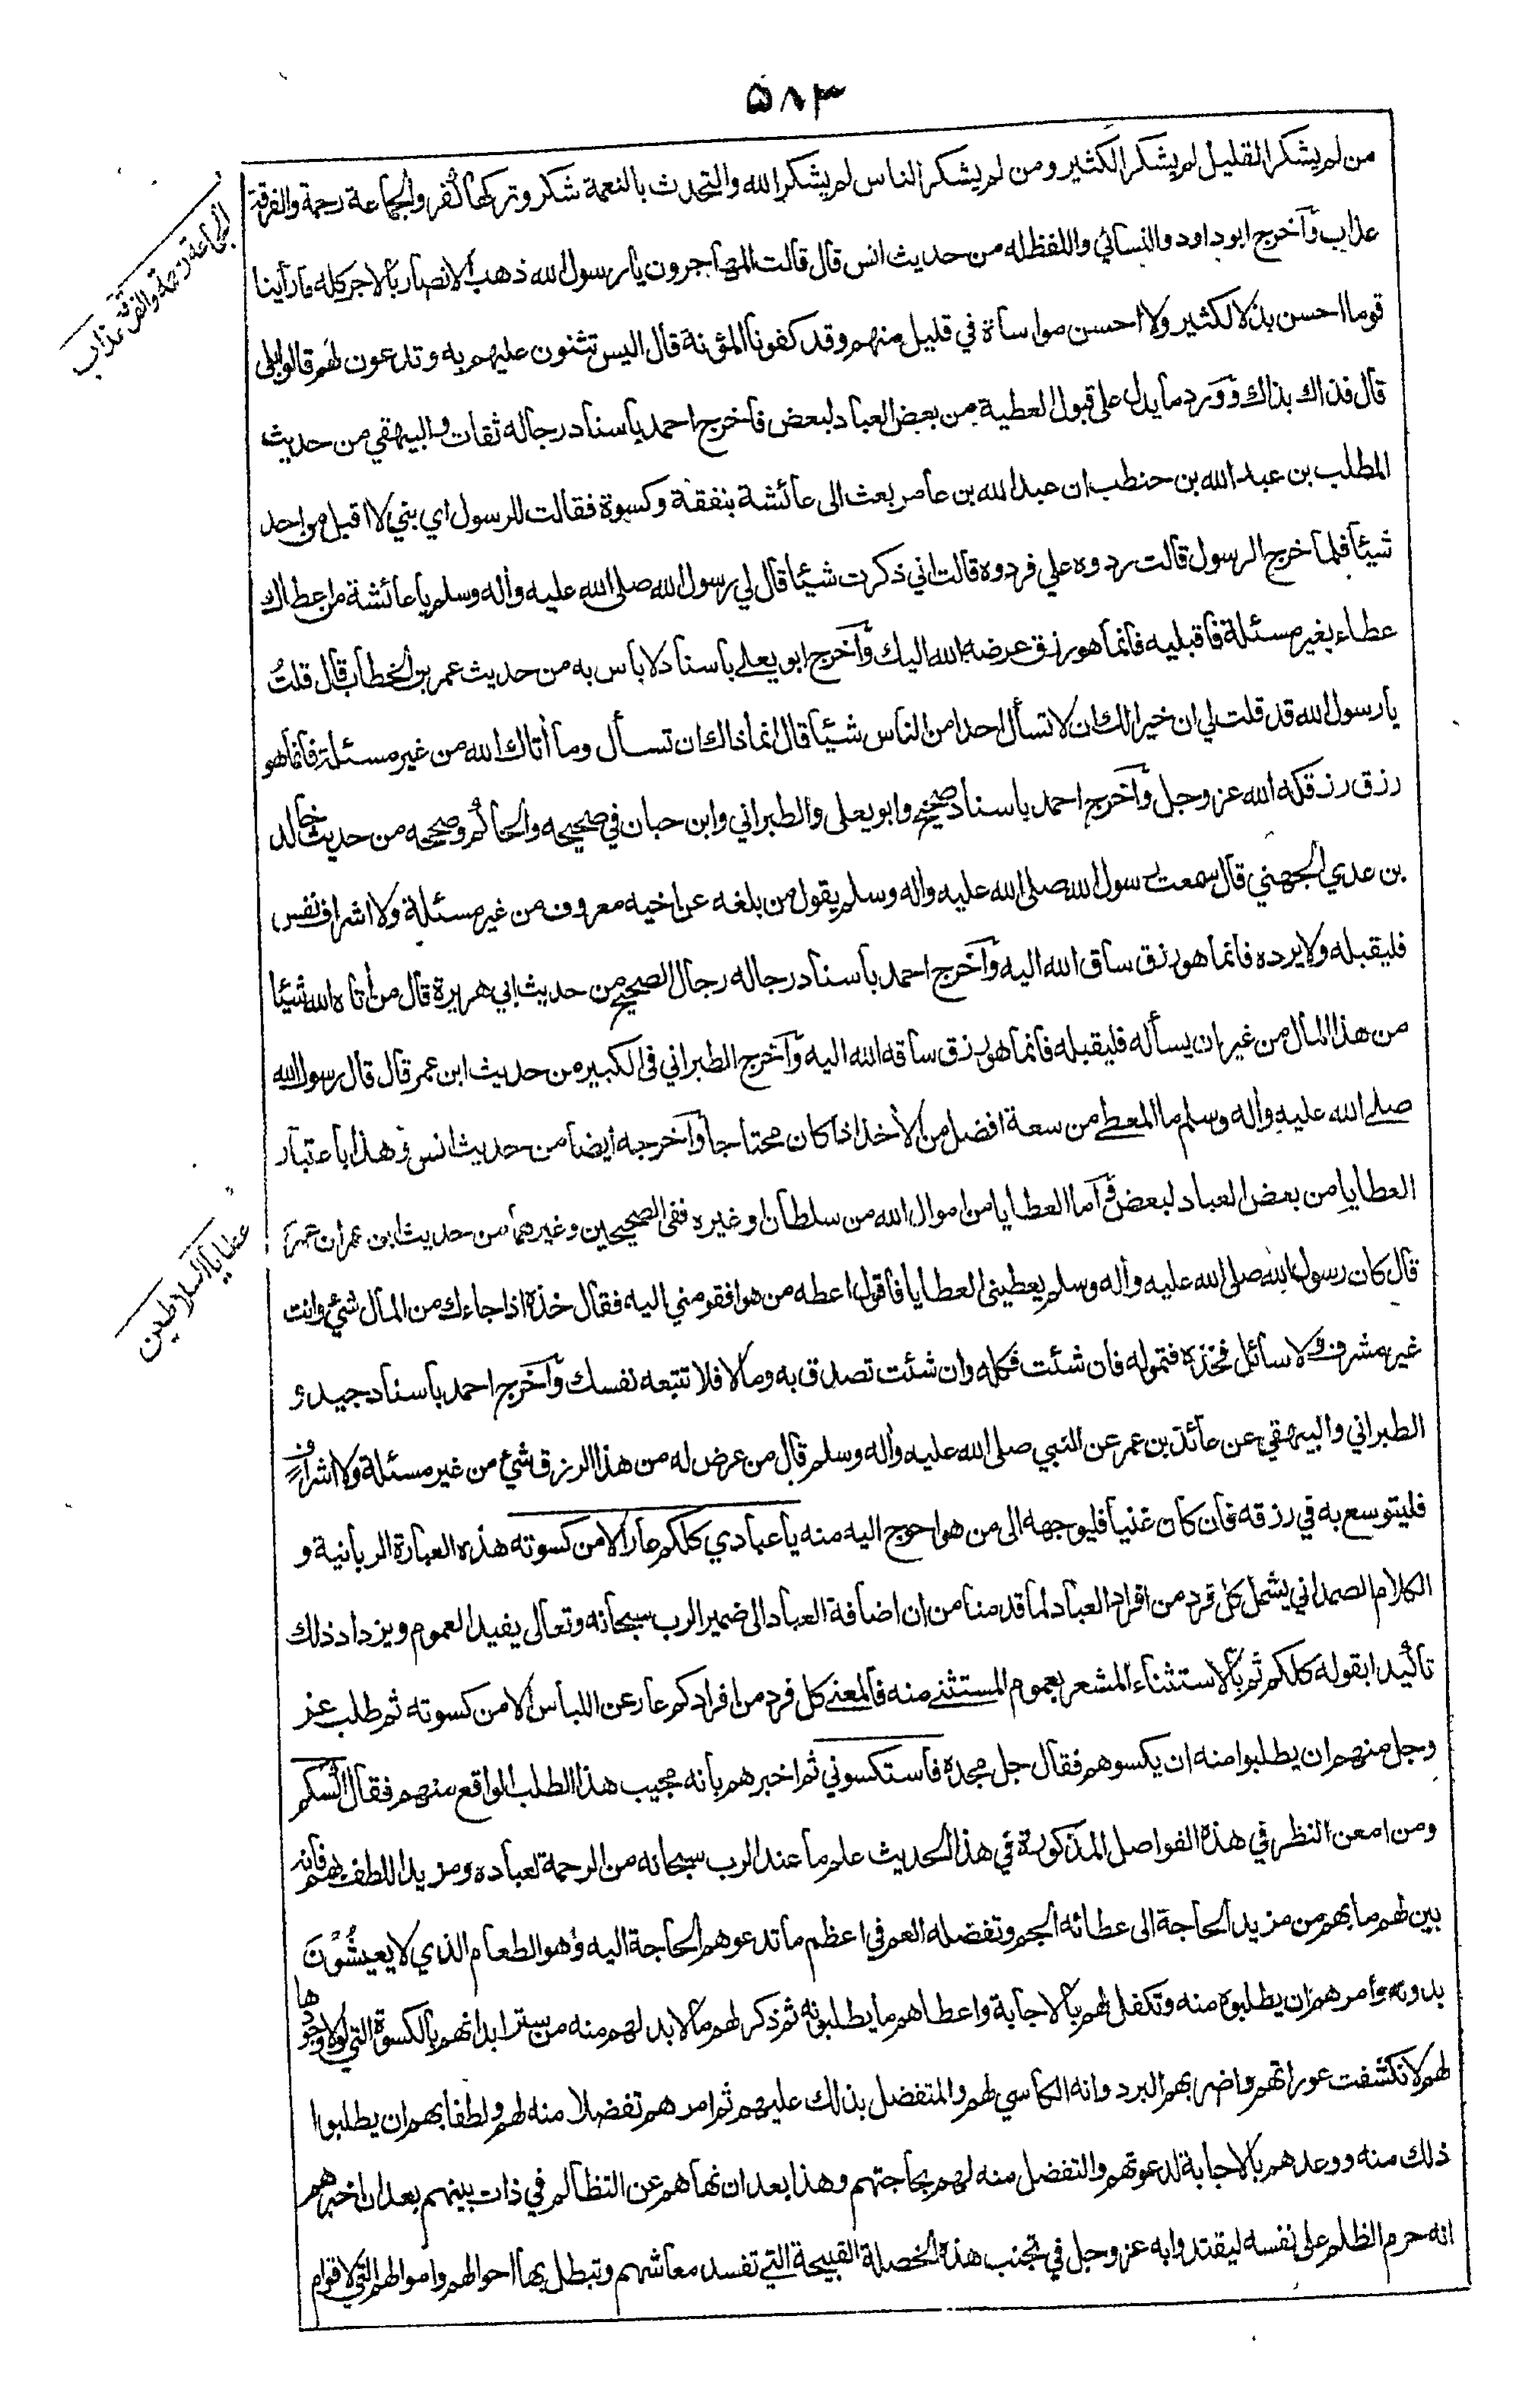 ٥٨٣
من لم يشكر القليل لم يشكر الكثير ومن لم يشكر الناس لم يشكر الله والتحدث بالنعمة شكر وتركها كفر والجماعة رحمة والفرقة
الجماعة رحمة والفرقة عذاب
عذاب وآخرج ابو داود والنسائي واللفظ له من حديث انس قال قالت المهاجرون يا رسول الله ذهب الانصار بالاجر كله ما رأينا
قوما احسن بذلا لكثير ولا احسن مواساة في قليل منهم وقد كفونا المؤنة قال اليس تثنون عليهم به وتدعون لهم قالوا بلى
قال فذاك بذاك وورد ما يدل على قبول العطية من بعض العباد لبعض فاخرج احمد باسناد رجاله ثقات والبيهقي من حديث
المطلب بن عبد الله بن حنطب ان عبد الله بن عامر بعث الى عائشة بنفقة وكسوة فقالت للرسول اي بني لا اقبل من احد
شيئا فلما خرج الرسول قالت ردوه علي فردوه قالت اني ذكرت شيئا قال لي رسول الله صلى الله عليه وأله وسلم يا عائشة من اعطاك
عطاء بغير مسئلة فاقبليه فانما هو رزق عرضه الله اليك وآخرج ابو يعلى باسناد لا باس به من حديث عمر بن الخطاب قال قلتُ
يا رسول الله قد قلت لي ان خيرا لك ان لا تسأل احدا من الناس شيئا قال انما ذاك ان تسأل وما أتاك الله من غير مسئلة فانما هو
رزق رزقكه الله عز وجل وآخرج احمد باسناد صحيح وابو يعلى والطبراني وابن حبان في صحيحه والحاكم وصححه من حديث خالد
بن عدي الجهني قال سمعت رسول الله صلى الله عليه واله وسلم يقول من بلغه عن اخيه معروف من غير مسئلة ولا اشراف نفس
فليقبله ولا يرده فانما هو رزق ساق الله اليه وآخرج احمد باسناد رجاله رجال الصحيح من حديث ابي هريرة قال من أتاه الله شيئا
من هذا المال من غير ان يسأله فليقبله فانما هو رزق ساقه الله اليه وآخرج الطبراني في الكبير من حديث ابن عمر قال قال رسول الله
صلى الله عليه وأله وسلم ما المعطي من سعة افضل من الأخذ اذا كان محتاجا وآخرجه ايضا من حديث انس وهذا باعتبار
العطايا من بعض العباد لبعض وآما العطايا من اموال الله من سلطان او غيره ففي الصحيحين وغيرهما من حديث ابن عمر ان عمر
عطايا السلاطين
قال كان رسول الله صلى الله عليه وأله وسلم يعطيني العطايا فاقول اعطه من هو افقر مني اليه فقال خذه اذا جاءك من المال شيء وانت
غير مشرف ولا سائل فخذه فتموله فان شئت فكله وان شئت تصدق به وما لا فلا تتبعه نفسك وآخرج احمد باسناد جيد و
الطبراني والبيهقي عن عائذ بن عمر عن النبي صلى الله عليه وأله وسلم قال من عرض له من هذا الرزق شيء من غير مسئلة ولا اشراف
فليتوسع به في رزقه فان كان غنيا فليوجهه الى من هو احوج اليه منه يا عبادي كلكم عار الا من كسوته هذه العبارة الربانية و
الكلام الصمداني يشمل كل فرد من افراد العباد لما قدمنا من ان اضافة العباد الى ضمير الرب سبحانه وتعالى يفيد العموم ويزداد ذلك
تأكيدا بقوله كلكم ثم بالاستثناء المشعر بعموم المستثنى منه فالمعنى كل فرد من افرادكم عار عن اللباس الا من كسوته ثم طلب عز
وجل منهم ان يطلبوا منه ان يكسوهم فقال جل مجده فاستكسوني ثم اخبرهم بانه مجيب هذا الطلب الواقع منهم فقال اكسكم
ومن امعن النظر في هذه الفواصل المذكورة في هذا الحديث علم ما عند الرب سبحانه من الرحمة لعباده ومزيد اللطف بهم فانه
بين لهم ما بهم من مزيد الحاجة الى عطائه الجم وتفضله العم في اعظم ما تدعوهم الحاجة اليه وهو الطعام الذي لا يعيشون
بدونه وأمرهم ان يطلبوه منه وتكفل لهم بالاجابة واعطاهم ما يطلبونه ثم ذكر لهم ما لا بد لهم منه من ستر ابدانهم بالكسوة التي لولا وجودها
لهم لانكشفت عوراتهم واضر بهم البرد وانه الكاسي لهم والمتفضل بذلك عليهم ثم امرهم تفضلا منه لهم ولطفا بهم ان يطلبوا
ذلك منه ووعدهم بالاجابة لدعوتهم والتفضل منه لهم بحاجتهم وهذا بعد ان نهاهم عن التظالم في ذات بينهم بعد ان اخبرهم
انه حرم الظلم على نفسه ليقتدوا به عز وجل في تجنب هذه الخصلة القبيحة التي تفسد معاشهم وتبطل بها احوالهم واموالهم التي لا قوام